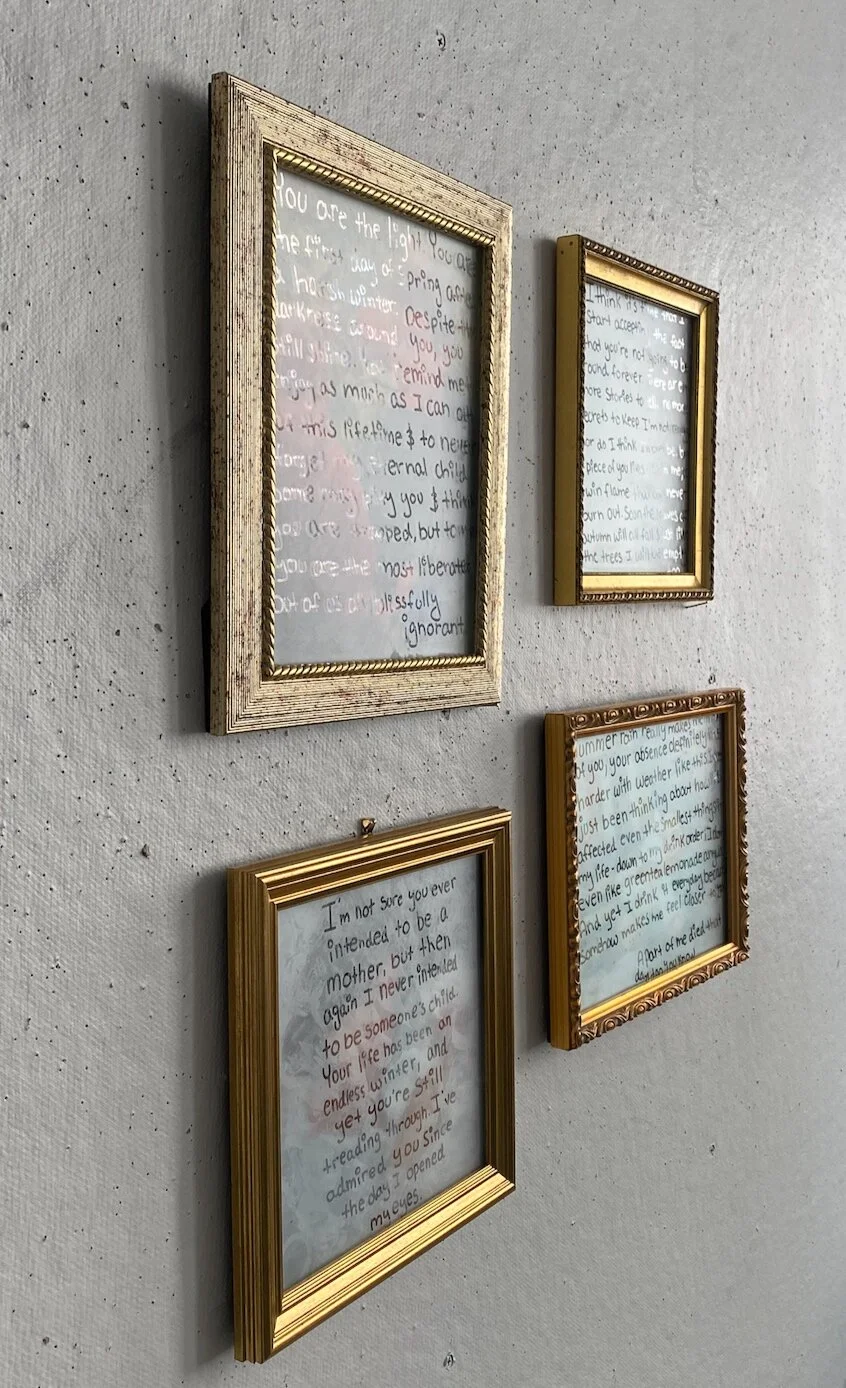 You are the light You are
the first day of Spring afte
a harsh winter. Despite th
darkness around you, you
still shine. You remind me
enjoy as much as I can ou
of this lifetime & to neve
forget my eternal child.
Some may say you & thin
you are trapped, but to m
you are the most liberate
out of us all blissfully
ignorant.
I think it's time that I
start accepting the fact
that you're not going to b
round forever There are
ore stories to no mor
ecrets to keep I'm not
or do I think be
piece of you lies me,
win flame that never
burn out. Soon the leaves
autumn will all fall
the trees I will
ummer rain really makes me
of you, your absence definitely
harder with weather like this.
just been thinking about how
affected even the smallest things
my life-down to my drink order. I do
even like green tea lemonade
And yet I drink it everyday becau
somehow makes me feel closer to
A part of me died that
day don't you know
I'm not sure you ever
intended to be a
mother, but then
again I never intended
to be someone's child.
Your life has been an
endless winter, and
yet you're still
treading through. I've
admired you since
the day I opened
my eyes.